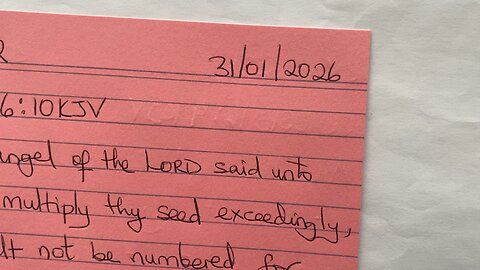 R 31/01/2026
6:10 KJV
angel of the LORD said unto
multiply thy seed exceedingly,
lt not be numbered for